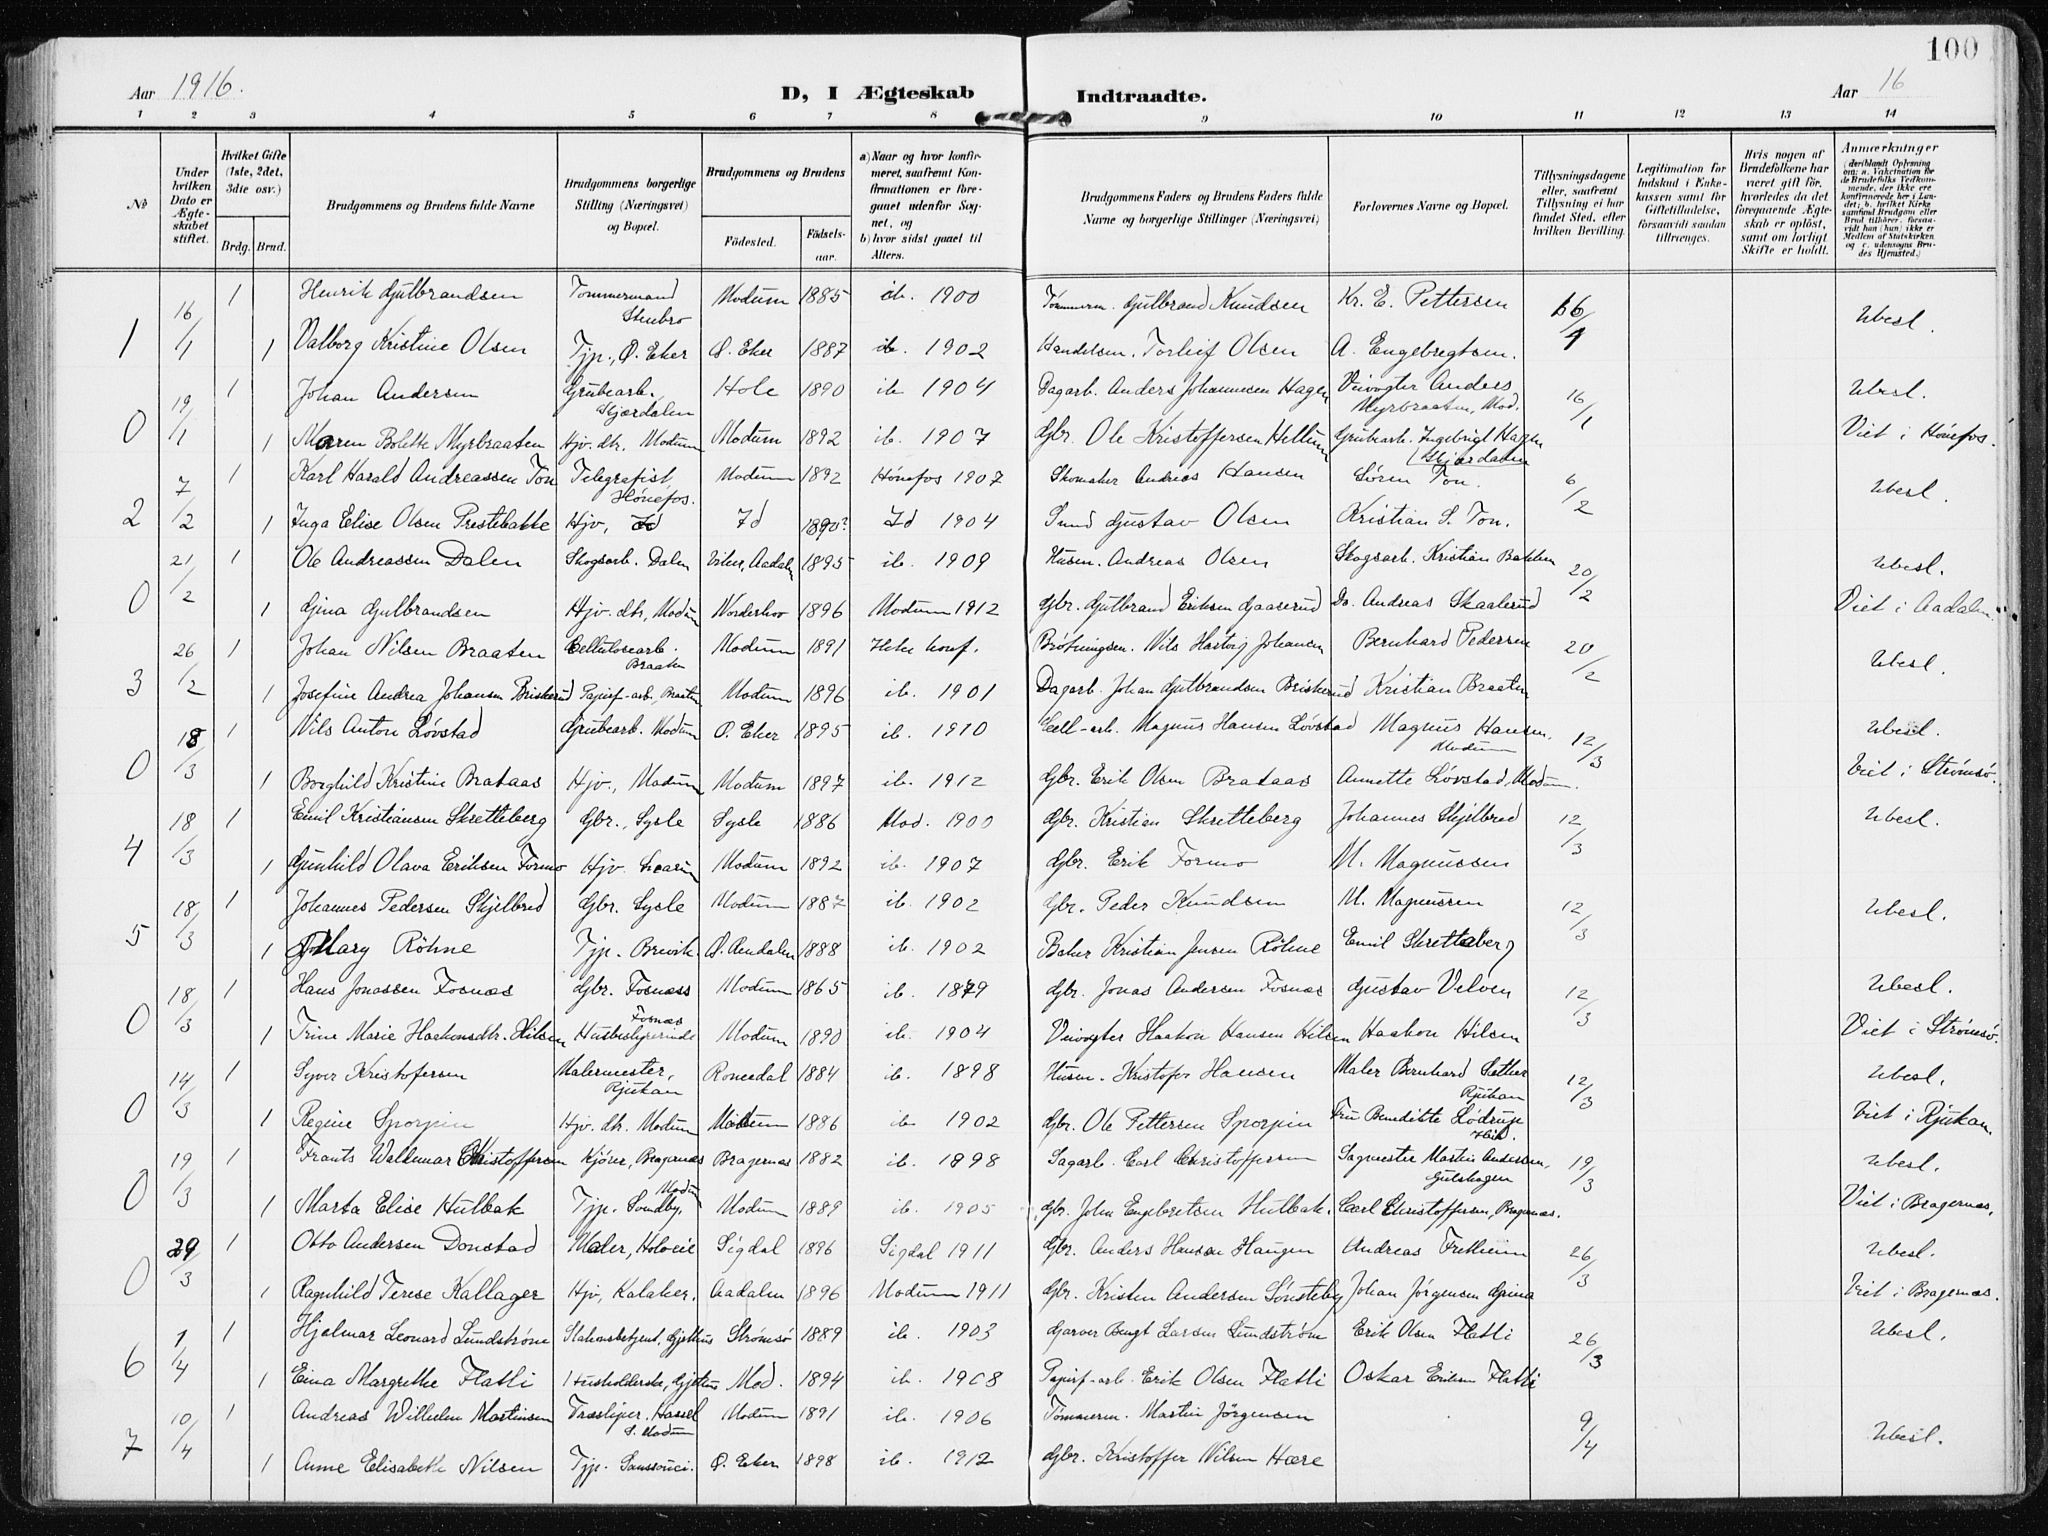 100
Aar 1916.
D, I Ægteskab Indtraadte.
Aar 16
1 2 3 4 5 6 7 8 9 10 11 12 13 14
No
Under hvilken Dato er Ægteskabet stiftet.
Hvilket Gifte (1ste, 2det, 3die osv.)
Brdg. Brud.
Brudgommens og Brudens fulde Navne
Brudgommens borgerlige Stilling (Næringsvei) og Bopæl.
Brudgommens og Brudens
Födested. Födselsaar.
a) Naar og hvor konfirmeret, saafremt Konfirmationen er foregaaet udenfor Sognet, og
b) hvor sidst gaaet til Alters.
Brudgommens Faders og Brudens Faders fulde Navne og borgerlige Stillinger (Næringsvei)
Forlovernes Navne og Bopæl.
Tillysningsdagene eller, saafremt Tillysning ei har fundet Sted, efter hvilken Bevilling.
Legitimation for Indskud i Enkekassen samt for Giftetilladelse, forsaavidt saadan tiltrænges.
Hvis nogen af Brudefolkene har været gift för, hvorledes da det foregaaende Ægteskab er oplöst, samt om lovligt Skifte er holdt.
Anmærkninger (deriblandt Oplysning om: a. Vakcination for de Brudefolks Vedkommende, der ikke ere konfirmerede her i Landet; b. hvilket Kirkesamfund Brudgom eller Brud tilhörer, forsaavidt han (hun) ikke er Medlem af Statskirken og c. udensogns Brudes Hjemsted.)
1 16/1 1 Henrik Gulbrandsen Tommermand Stenbro Modum 1885 ib. 1900 Tømmerm. Gulbrand Knudsen Kr. E. Pettersen 16/1 Ubesl.
1 Valborg Kristine Olsen Tjp., Ø. Eker Ø. Eker 1887 ib. 1902 Handelsm. Torleif Olsen A. Engebregtsen.
0 19/1 1 Johan Andersen Grubearb. Skjærdalen Hole 1890 ib. 1904 Dagarb. Anders Johannesen Hagen Veivogter Anders Myrbraaten, Mod. 16/1 Ubesl.
1 Maren Bolette Myrbraaten Hjv. dtr. Modum Modum 1892 ib. 1907 Gbr. Ole Kristoffersen Hellum Grubearb. Ingebrigt Hagen Skjærdalen Viet i Hönefos.
2 7/2 1 Karl Harald Andreassen Ton Telegrafist, Hönefos. Modum 1892 Hönefos 1907 Skomaker Andreas Hansen Søren Ton. 6/2 Ubesl.
1 Inga Elise Olsen Prestebakke Hjv, Id Id 1890? Id 1904 Smed Gustav Olsen Kristian S. Ton.
0 21/2 1 Ole Andreassen Dalen Skogsarb. Dalen Viker, Aadalen 1895 ib. 1909 Husm. Andreas Olsen Skogsarb. Kristian Bakken 20/2 Ubesl.
1 Gina Gulbrandsen Hjv. dtr, Modum Norderhov 1896 Modum 1912 Gbr. Gulbrand Eriksen Gaaserud Do. Andreas Skaalerud Viet i Aadalen.
3 26/2 1 Johan Nilsen Braaten Cellulosearb. Braaten Modum 1891 Ikke konf. Brøtningsm. Nils Hartvig Johansen Bernhard Pedersen 20/2 Ubesl.
1 Josefine Andrea Johansen Briskerud Papirf-arb, Braaten Modum 1896 ib. 1901 Dagarb. Johan Gulbrandsen Briskerud Kristian Braaten
0 18/3 1 Nils Anton Lövstad Grubearb. Modum Ø. Eker 1895 ib. 1910 Cell-arb. Magnus Hansen Lövstad Magnus Hansen, Modum 12/3 Ubesl.
1 Borghild Kristine Brataas Hjv., Modum Modum 1897 ib. 1912 Gbr. Erik Olsen Brataas Annette Lövstad, Modum. Viet i Strømsø.
4 18/3 1 Emil Kristiansen Skretteberg Gbr., Sysle Sysle 1886 Mod. 1900 Gbr. Kristian Skretteberg Johannes Skjelbred 12/3 Ubesl.
1 Gunhild Olava Eriksen Formo Hjv. Modum 1892 ib. 1907 Gbr. Erik Formo M. Magnussen
5 18/3 1 Johannes Pedersen Skjelbred Gbr. Sysle Modum 1887 ib. 1902 Gbr. Peder Knudsen M. Magnussen 12/3 Ubesl.
1 Mary Röhne Tjp. Brevik. Ø. Aandalen 1888 ib. 1902 Baker Kristian Jensen Röhne Emil Skretteberg
0 18/3 1 Hans Jonassen Fosnæs Gbr. Fosnæss Modum 1865 ib. 1879 Gbr. Jonas Andersen Fosnæs Gustav Velven 12/3 Ubesl.
1 Trine Marie Haakonsdtr. Hilsen Husbestyrerinde Fosnæs Modum 1890 ib. 1904 Veivogter Haakon Hansen Hilsen Haakon Hilsen Viet i Strømsø.
0 14/3 1 Syver Kristofersen Malermester, Rjukan Romedal 1884 ib. 1898 Husm. Kristofer Hansen Maler Bernhard Sether Rjukan 12/3 Ubesl.
1 Regine Sporpin Hjv. dtr. Modum Modum 1886 ib 1902 Gbr. Ole Pettersen Sporpin Fru Benedikte Lödrup ibid. Viet i Rjukan.
0 19/3 1 Frants Waldemar Christoffersen Kjörer, Bragernæs Bragernæs 1882 ib. 1898 Sagarb. Carl Christoffersen Sagmester Martin Andersen, Gulskogen 19/3 Ubesl.
1 Marta Elise Hulbak Tjp. Sundby, Modum Modum 1889 ib. 1905 Gbr. John Engebretsen Hulbak. Carl Christoffersen, Bragernæs. Viet i Bragernæs.
0 29/3 1 Otto Andersen Donstad Maler, Holoeie Sigdal 1896 Sigdal 1911 Gbr. Anders Hansen Haugen Andreas Fretheim 26/3 Ubesl.
1 Ragnhild Terese Kallager Hjv, Kalaker. Aadalen 1896 Modum 1911 Gbr. Kristen Andersen Sønsteby Johan Jörgensen Grina Viet i Bragernæs.
6 1/4 1 Hjalmar Leonard Lundström Stationsbetjent, Gjethus Strömsö 1889 ib. 1903 Garver Bengt Larsen Lundström Erik Olsen Flatli 26/3 Ubesl.
1 Eina Margrethe Flatli Husholderske, Gjethus Mod. 1894 ib. 1908 Papirf-arb. Erik Olsen Flatli Oskar Eriksen Flatli
7 10/4 1 Andreas Wilhelm Martinsen Træsliper. Hassel S. Modum Modum 1891 ib. 1906 Tömmerm. Martin Jörgensen 9/4 Ubesl.
1 Anne Elisabeth Nilsen Tjp. Sanssouci. Ø. Eker 1898 ib. 1912 Gbr. Kristoffer Nilsen Hære